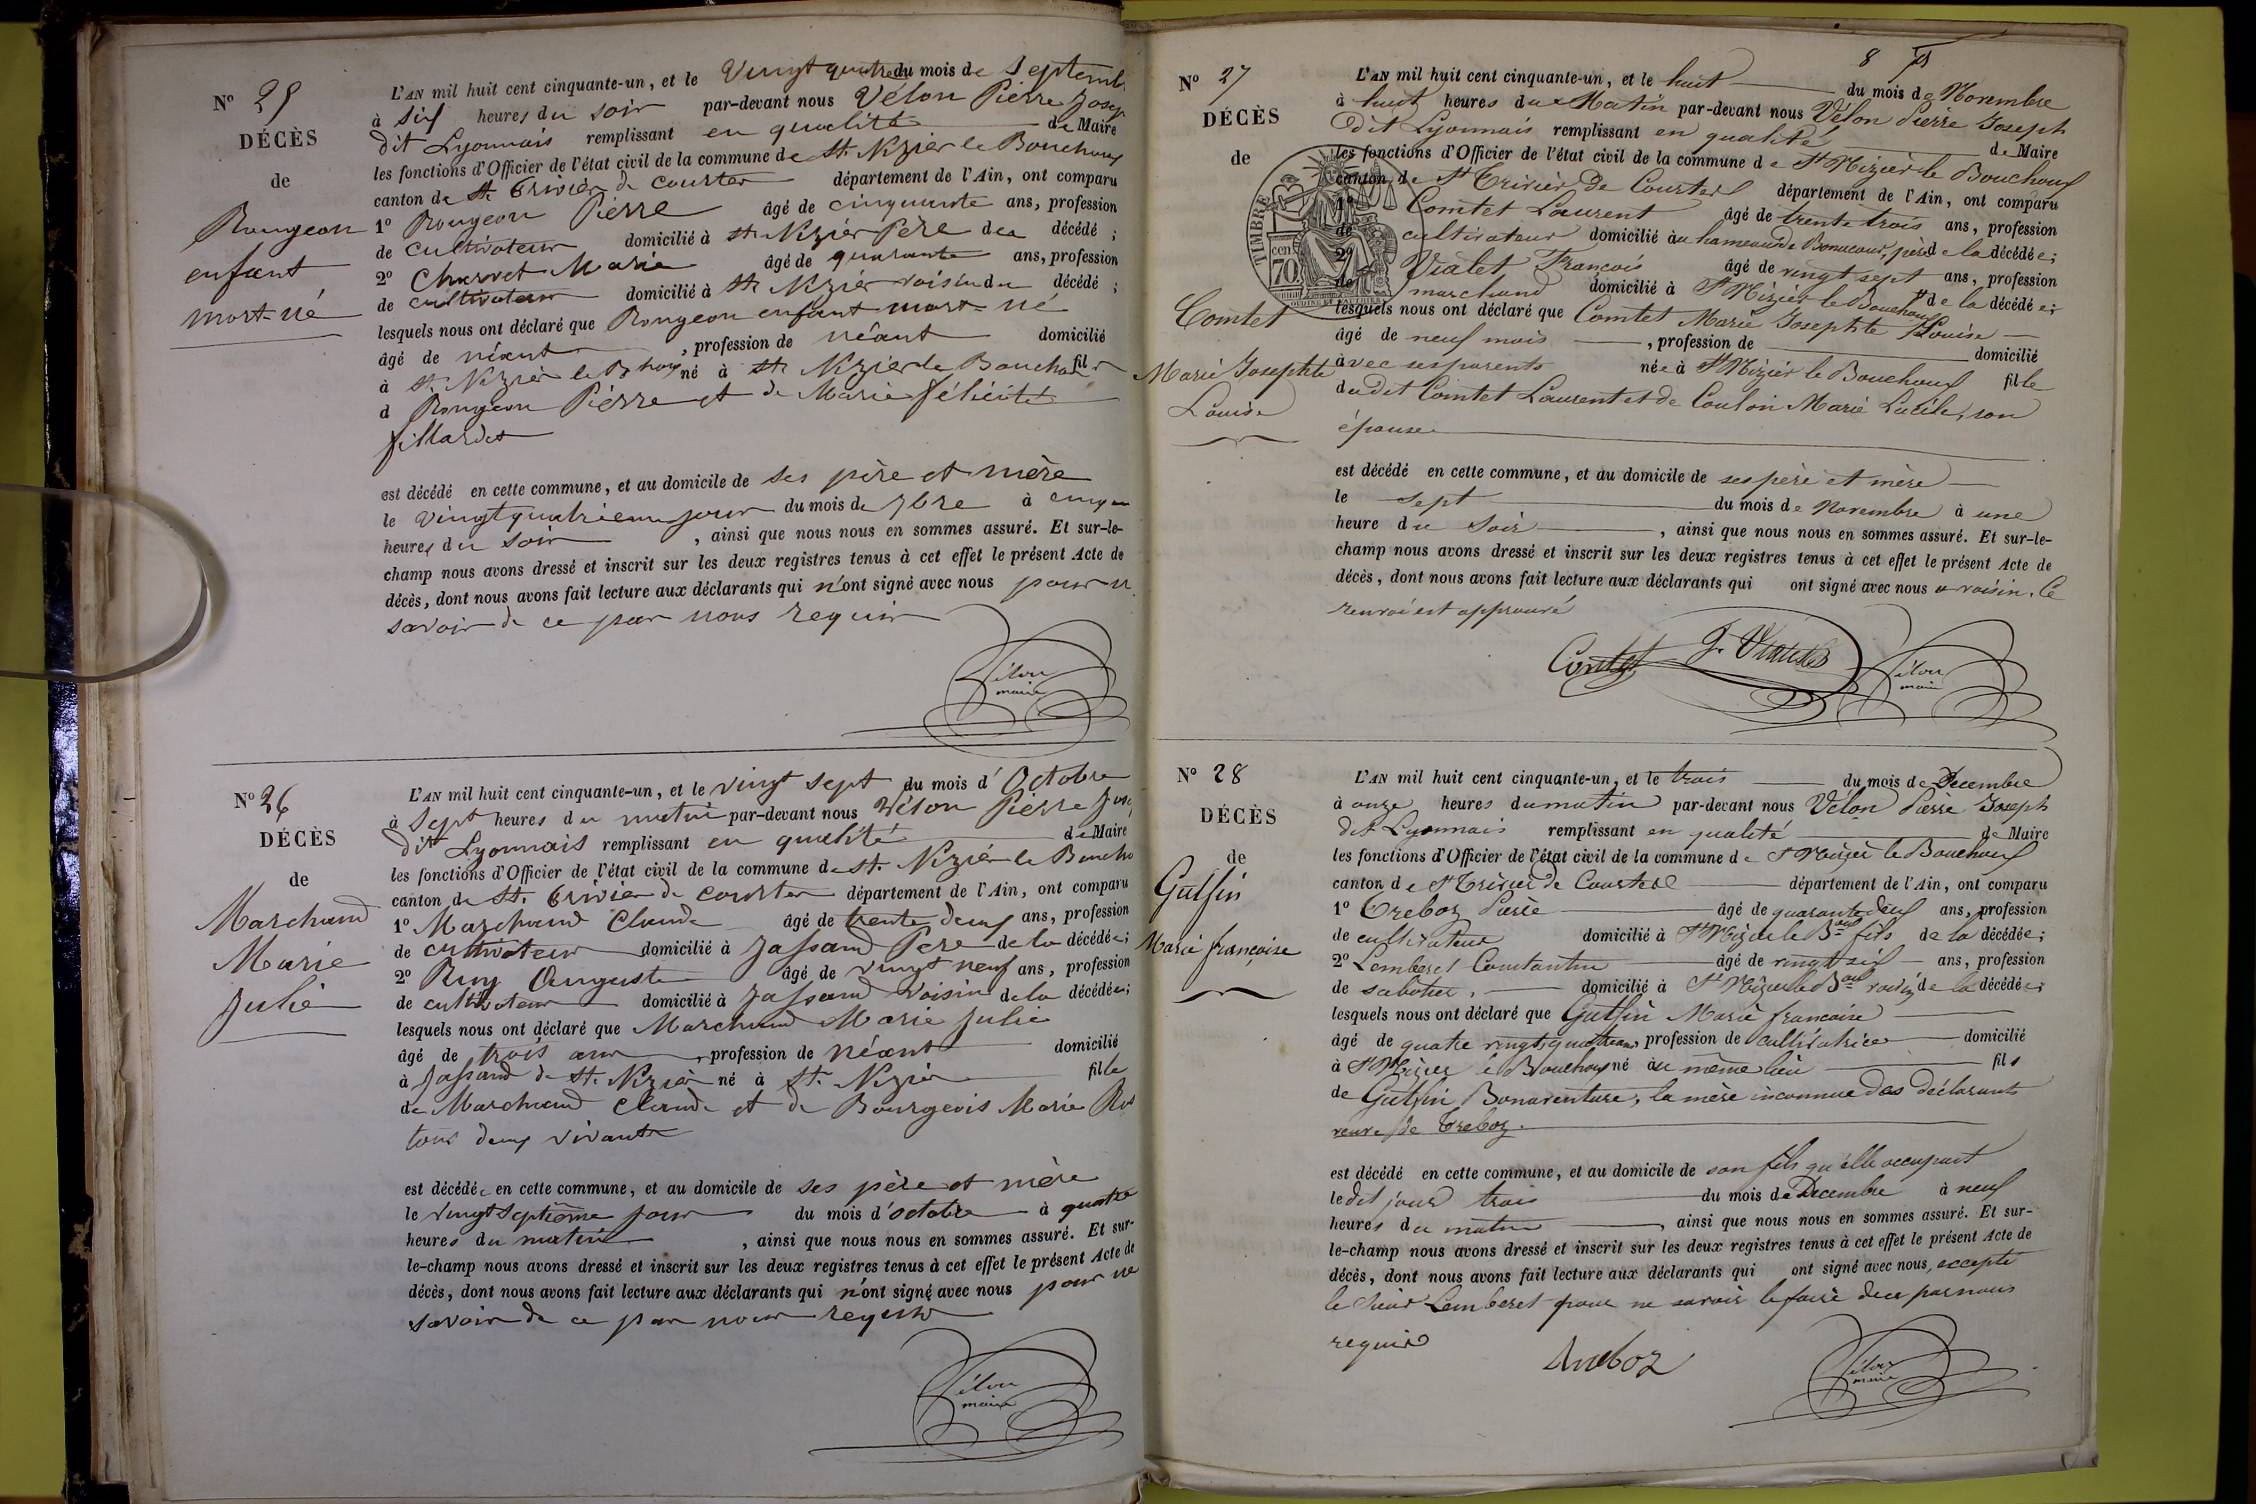 Nº 25
DÉCÈS
de
Rougeon
enfant
mort-né
L'AN mil huit cent cinquante-un, et le Vingt quatre du mois de Septemb
à six heures du soir par-devant nous Vélon Pierre Josep
dit Lyonnais remplissant en qualité de Maire
les fonctions d'Officier de l'état civil de la commune de St. Nizier le Bouchoux
canton de St Trivier de Courtes département de l'Ain, ont comparu
1º Rougeon Pierre âgé de cinquante ans, profession
de cultivateur domicilié à St Nizier Père du décédé ;
2º Charvet Marie âgé de quarante ans, profession
de cultivateur domicilié à St Nizier voisin du décédé ;
lesquels nous ont déclaré que Rougeon enfant mort-né
âgé de néant , profession de néant domicilié
à St. Nizier le Bhoux né à St Nizier le Bouchoux fil
d Rougeon Pierre et de Marie félicité
fillardet
est décédé en cette commune, et au domicile de ses père et mère
le vingt quatrieme jour du mois de 7bre à cinq
heures du soir , ainsi que nous nous en sommes assuré. Et sur-le-
champ nous avons dressé et inscrit sur les deux registres tenus à cet effet le présent Acte de
décès, dont nous avons fait lecture aux déclarants qui n'ont signé avec nous pour n
savoir de ce par nous requis
Vélon
maire
Nº 26
DÉCÈS
de
Marchand
Marie
Julie
L'AN mil huit cent cinquante-un, et le vingt sept du mois d'Octobre
à sept heures du matin par-devant nous Vélon Pierre Jose
dit Lyonnais remplissant en qualité de Maire
les fonctions d'Officier de l'état civil de la commune de St. Nizier le Boucho
canton de St. Trivier de Courtes département de l'Ain, ont comparu
1º Marchand Claude âgé de trente deux ans, profession
de cultivateur domicilié à Jassand Père de la décédée ;
2º Ruy Auguste âgé de vingt neuf ans, profession
de cultivateur domicilié à Jassand voisin de la décédée ;
lesquels nous ont déclaré que Marchand Marie Julie
âgé de trois ans , profession de néant domicilié
à Jassand de St. Nizier né à St. Nizier fille
de Marchand Claude et de Bourgeois Marie
tous deux vivants
est décédée en cette commune, et au domicile de ses père et mère
le vingt septième jour du mois d'octobre à quatre
heures du matin , ainsi que nous nous en sommes assuré. Et sur-
le-champ nous avons dressé et inscrit sur les deux registres tenus à cet effet le présent Acte de
décès, dont nous avons fait lecture aux déclarants qui n'ont signé avec nous pour ne
savoir de ce par nous requis
Vélon
maire
8
Nº 27
DÉCÈS
de
Comtet
Marie Josephte
Louise
TIMBRE
70 cen
L'AN mil huit cent cinquante-un, et le huit du mois de Novembre
à huit heures du Matin par-devant nous Vélon Pierre Joseph
dit Lyonnais remplissant en qualité de Maire
les fonctions d'Officier de l'état civil de la commune de St Nizier le Bouchoux
canton de St Trivier de Courtes département de l'Ain, ont comparu
1º Comtet Laurent âgé de trente trois ans, profession
de cultivateur domicilié au hameau de Bonacour, père de la décédée ;
2º Vialet François âgé de vingt sept ans, profession
de marchand domicilié à St Nizier le Bouchoux de la décédée ;
lesquels nous ont déclaré que Comtet Marie Josephte Louise
âgé de neuf mois , profession de domicilié
avec ses parents née à St Nizier le Bouchoux fille
du dit Comtet Laurent et de Coulon Marie Lucile, son
épouse
est décédé en cette commune, et au domicile de ses père et mère
le sept du mois de Novembre à une
heure du Soir , ainsi que nous nous en sommes assuré. Et sur-le-
champ nous avons dressé et inscrit sur les deux registres tenus à cet effet le présent Acte de
décès, dont nous avons fait lecture aux déclarants qui ont signé avec nous voisin. Ce
renvoi est approuvé
Comtet
Vélon
maire
Nº 28
DÉCÈS
de
Gutfin
Marie françoise
L'AN mil huit cent cinquante-un, et le trois du mois de Decembre
à onze heures du matin par-devant nous Vélon Pierre Joseph
dit Lyonnais remplissant en qualité de Maire
les fonctions d'Officier de l'état civil de la commune de St Nizier le Bouchoux
canton de St Trivier de Courtes département de l'Ain, ont comparu
1º Treboz Pierre âgé de quarante deux ans, profession
de cultivateur domicilié à St Nizier le Boux fils de la décédée ;
2º Lemberet Constantin âgé de vingt six ans, profession
de sabotier, domicilié à St Nizier le Boux voisin de la décédée ;
lesquels nous ont déclaré que Gutfin Marie francoise
âgé de quatre vingt quatre ans, profession de cultivatrice domicilié
à St Nizier le Bouchoux né au même lieu fils
de Gutfin Bonaventure, la mère inconnue des déclarants
veuve de Treboz.
est décédé en cette commune, et au domicile de son fils qu'elle occupait
le dit jour trois du mois de Decembre à neuf
heures du matin , ainsi que nous nous en sommes assuré. Et sur-
le-champ nous avons dressé et inscrit sur les deux registres tenus à cet effet le présent Acte de
décès, dont nous avons fait lecture aux déclarants qui ont signé avec nous, excepté
le Sieur Lemberet pour ne savoir le faire de ce par nous
requis
Treboz
Vélon
maire